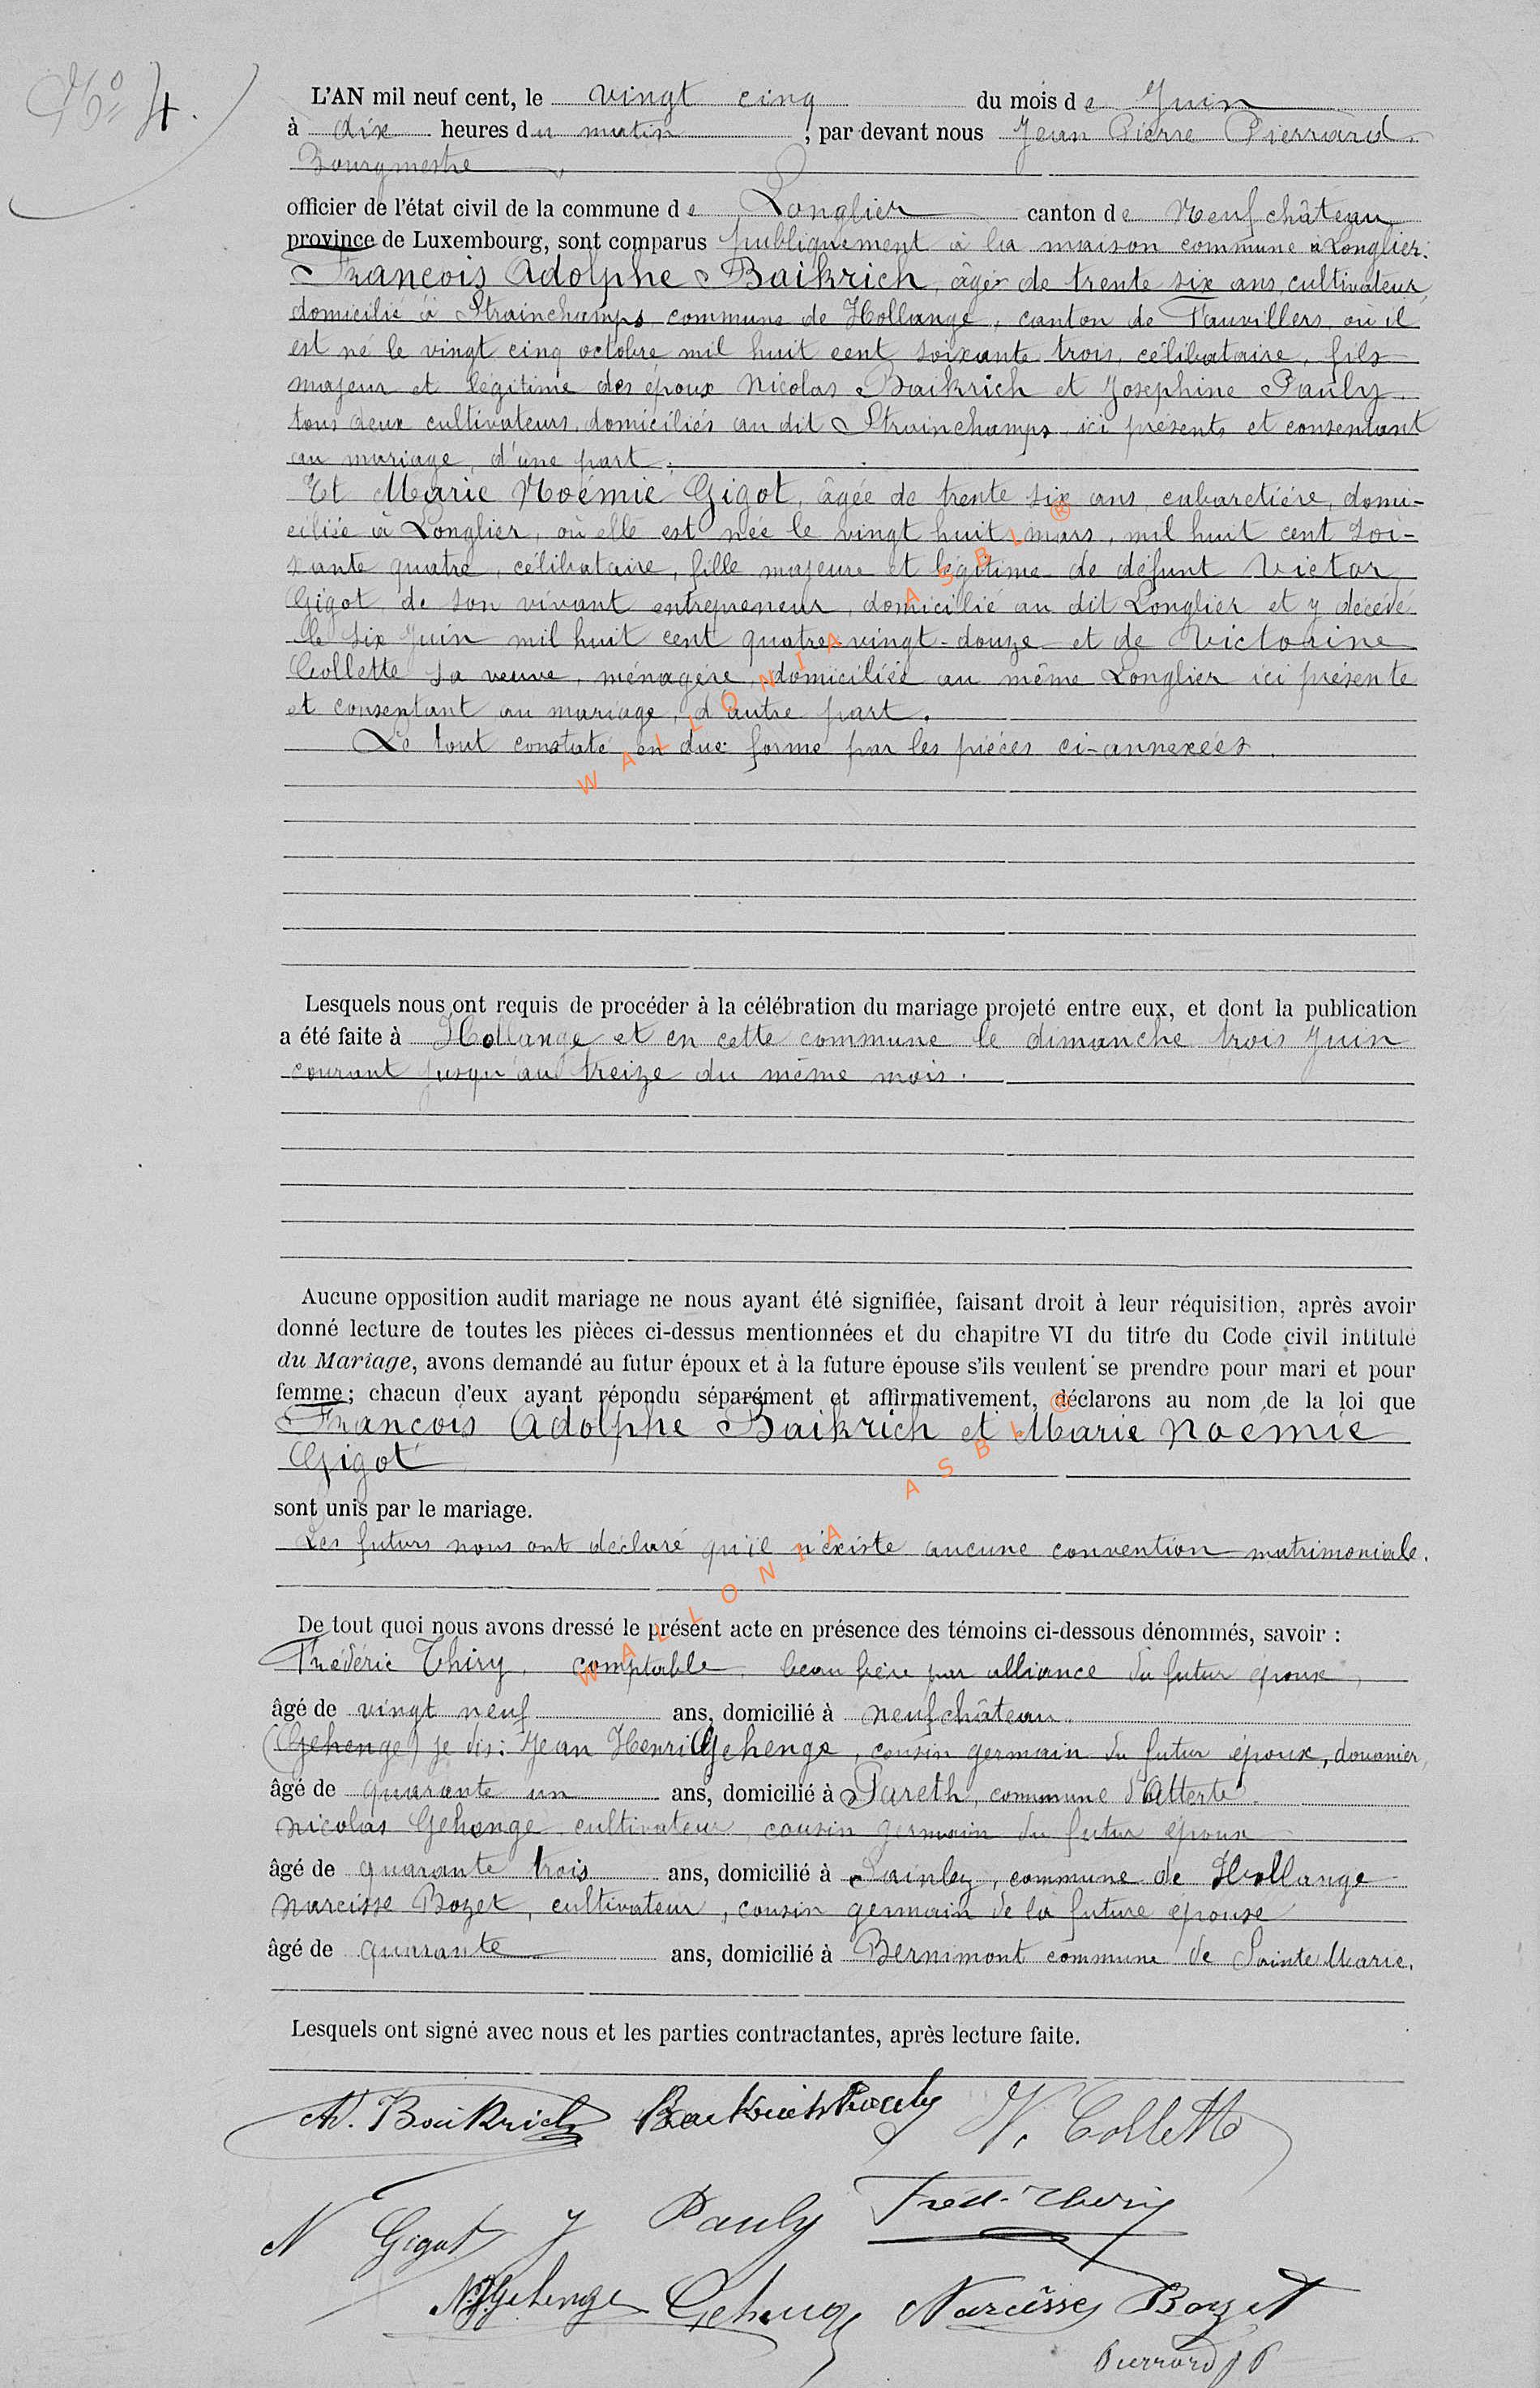 N° 4.
L'AN mil neuf cent, le vingt cinq du mois de Juin
à dix heures du matin, par devant nous Jean Pierre Pierrard
Bourgmestre
officier de l'état civil de la commune de Longlier canton de Neufchâteau
province de Luxembourg, sont comparus publiquement à la maison commune à Longlier:
François Adolphe Baikrich, âgé de trente six ans, cultivateur,
domicilié à Strainchamps commune de Hollange, canton de Fauvillers, où il
est né le vingt cinq octobre mil huit cent soixante trois, célibataire, fils
majeur et légitime des époux Nicolas Baikrich et Josephine Pauly
tous deux cultivateurs, domiciliés au dit Strainchamps, ici présents et consentant
au mariage, d'une part;
Et Marie Noémie Gigot, âgée de trente six ans, cabaretière, domi-
ciliée à Longlier, où elle est née le vingt huit mars, mil huit cent soi-
xante quatre, célibataire, fille majeure et légitime de défunt Victor
Gigot, de son vivant entrepreneur, domicilié au dit Longlier et y décédé
le six Juin mil huit cent quatre-vingt-douze et de Victorine
Collette sa veuve, ménagère, domiciliée au même Longlier ici présente
et consentant au mariage, d'autre part.
Le tout constaté en due forme par les pièces ci-annexées.
WALLONIA ASBL ®
Lesquels nous ont requis de procéder à la célébration du mariage projeté entre eux, et dont la publication
a été faite à Hollange et en cette commune le dimanche trois Juin
courant jusqu'au treize du même mois.
Aucune opposition audit mariage ne nous ayant été signifiée, faisant droit à leur réquisition, après avoir
donné lecture de toutes les pièces ci-dessus mentionnées et du chapitre VI du titre du Code civil intitulé
du Mariage, avons demandé au futur époux et à la future épouse s'ils veulent se prendre pour mari et pour
femme; chacun d'eux ayant répondu séparément et affirmativement, déclarons au nom de la loi que
François Adolphe Baikrich et Marie Noémie
Gigot
sont unis par le mariage.
Les futurs nous ont déclaré qu'il n'existe aucune convention matrimoniale.
WALLONIA ASBL ®
De tout quoi nous avons dressé le présent acte en présence des témoins ci-dessous dénommés, savoir :
Frédéric Thiry, comptable, beau frère par alliance du futur époux,
âgé de vingt neuf ans, domicilié à Neufchâteau.
(Gehenge) je dis: Jean Henri Gehenge, cousin germain du futur époux, douanier,
âgé de quarante un ans, domicilié à Pareth, commune d'Attert
Nicolas Gehenge cultivateur, cousin germain du futur époux
âgé de quarante trois ans, domicilié à Sainlez, commune de Hollange
Narcisse Bozet, cultivateur, cousin germain de la future épouse
âgé de quarante ans, domicilié à Bernimont commune de Sainte Marie.
Lesquels ont signé avec nous et les parties contractantes, après lecture faite.
Ad. Baikrich Baikrich Pauly V. Collette
N Gigot J Pauly Fréd. Thiry
Gehenge Gehenge Narcisse Bozet
Pierrard J P